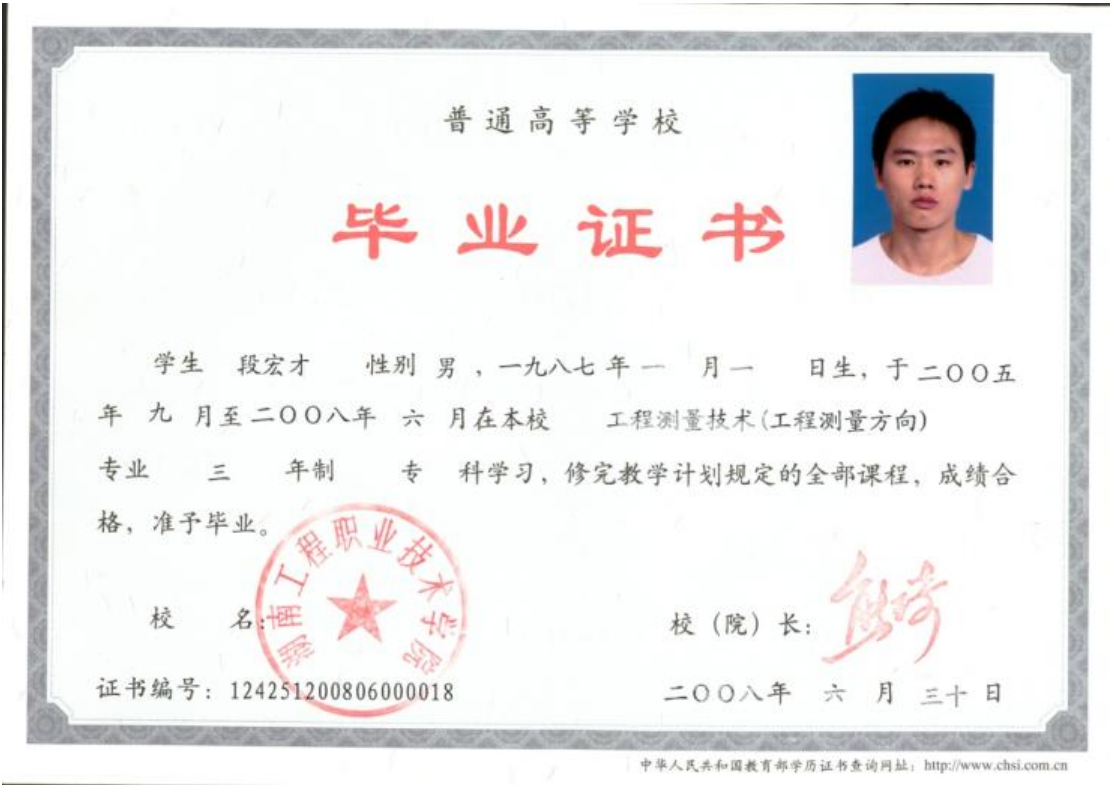 普通高等学校
毕业证书
学生 段宏才 性别 男 ，一九八七年 一 月 一 日生，于二〇〇五
年 九 月至二〇〇八年 六 月在本校 工程测量技术(工程测量方向)
专业 三 年制 专 科学习，修完教学计划规定的全部课程，成绩合
格，准予毕业。
湖南工程职业技术学院
校 名：
校（院）长：
证书编号：124251200806000018
二〇〇八年 六 月 三十 日
中华人民共和国教育部学历证书查询网址：http://www.chsi.com.cn